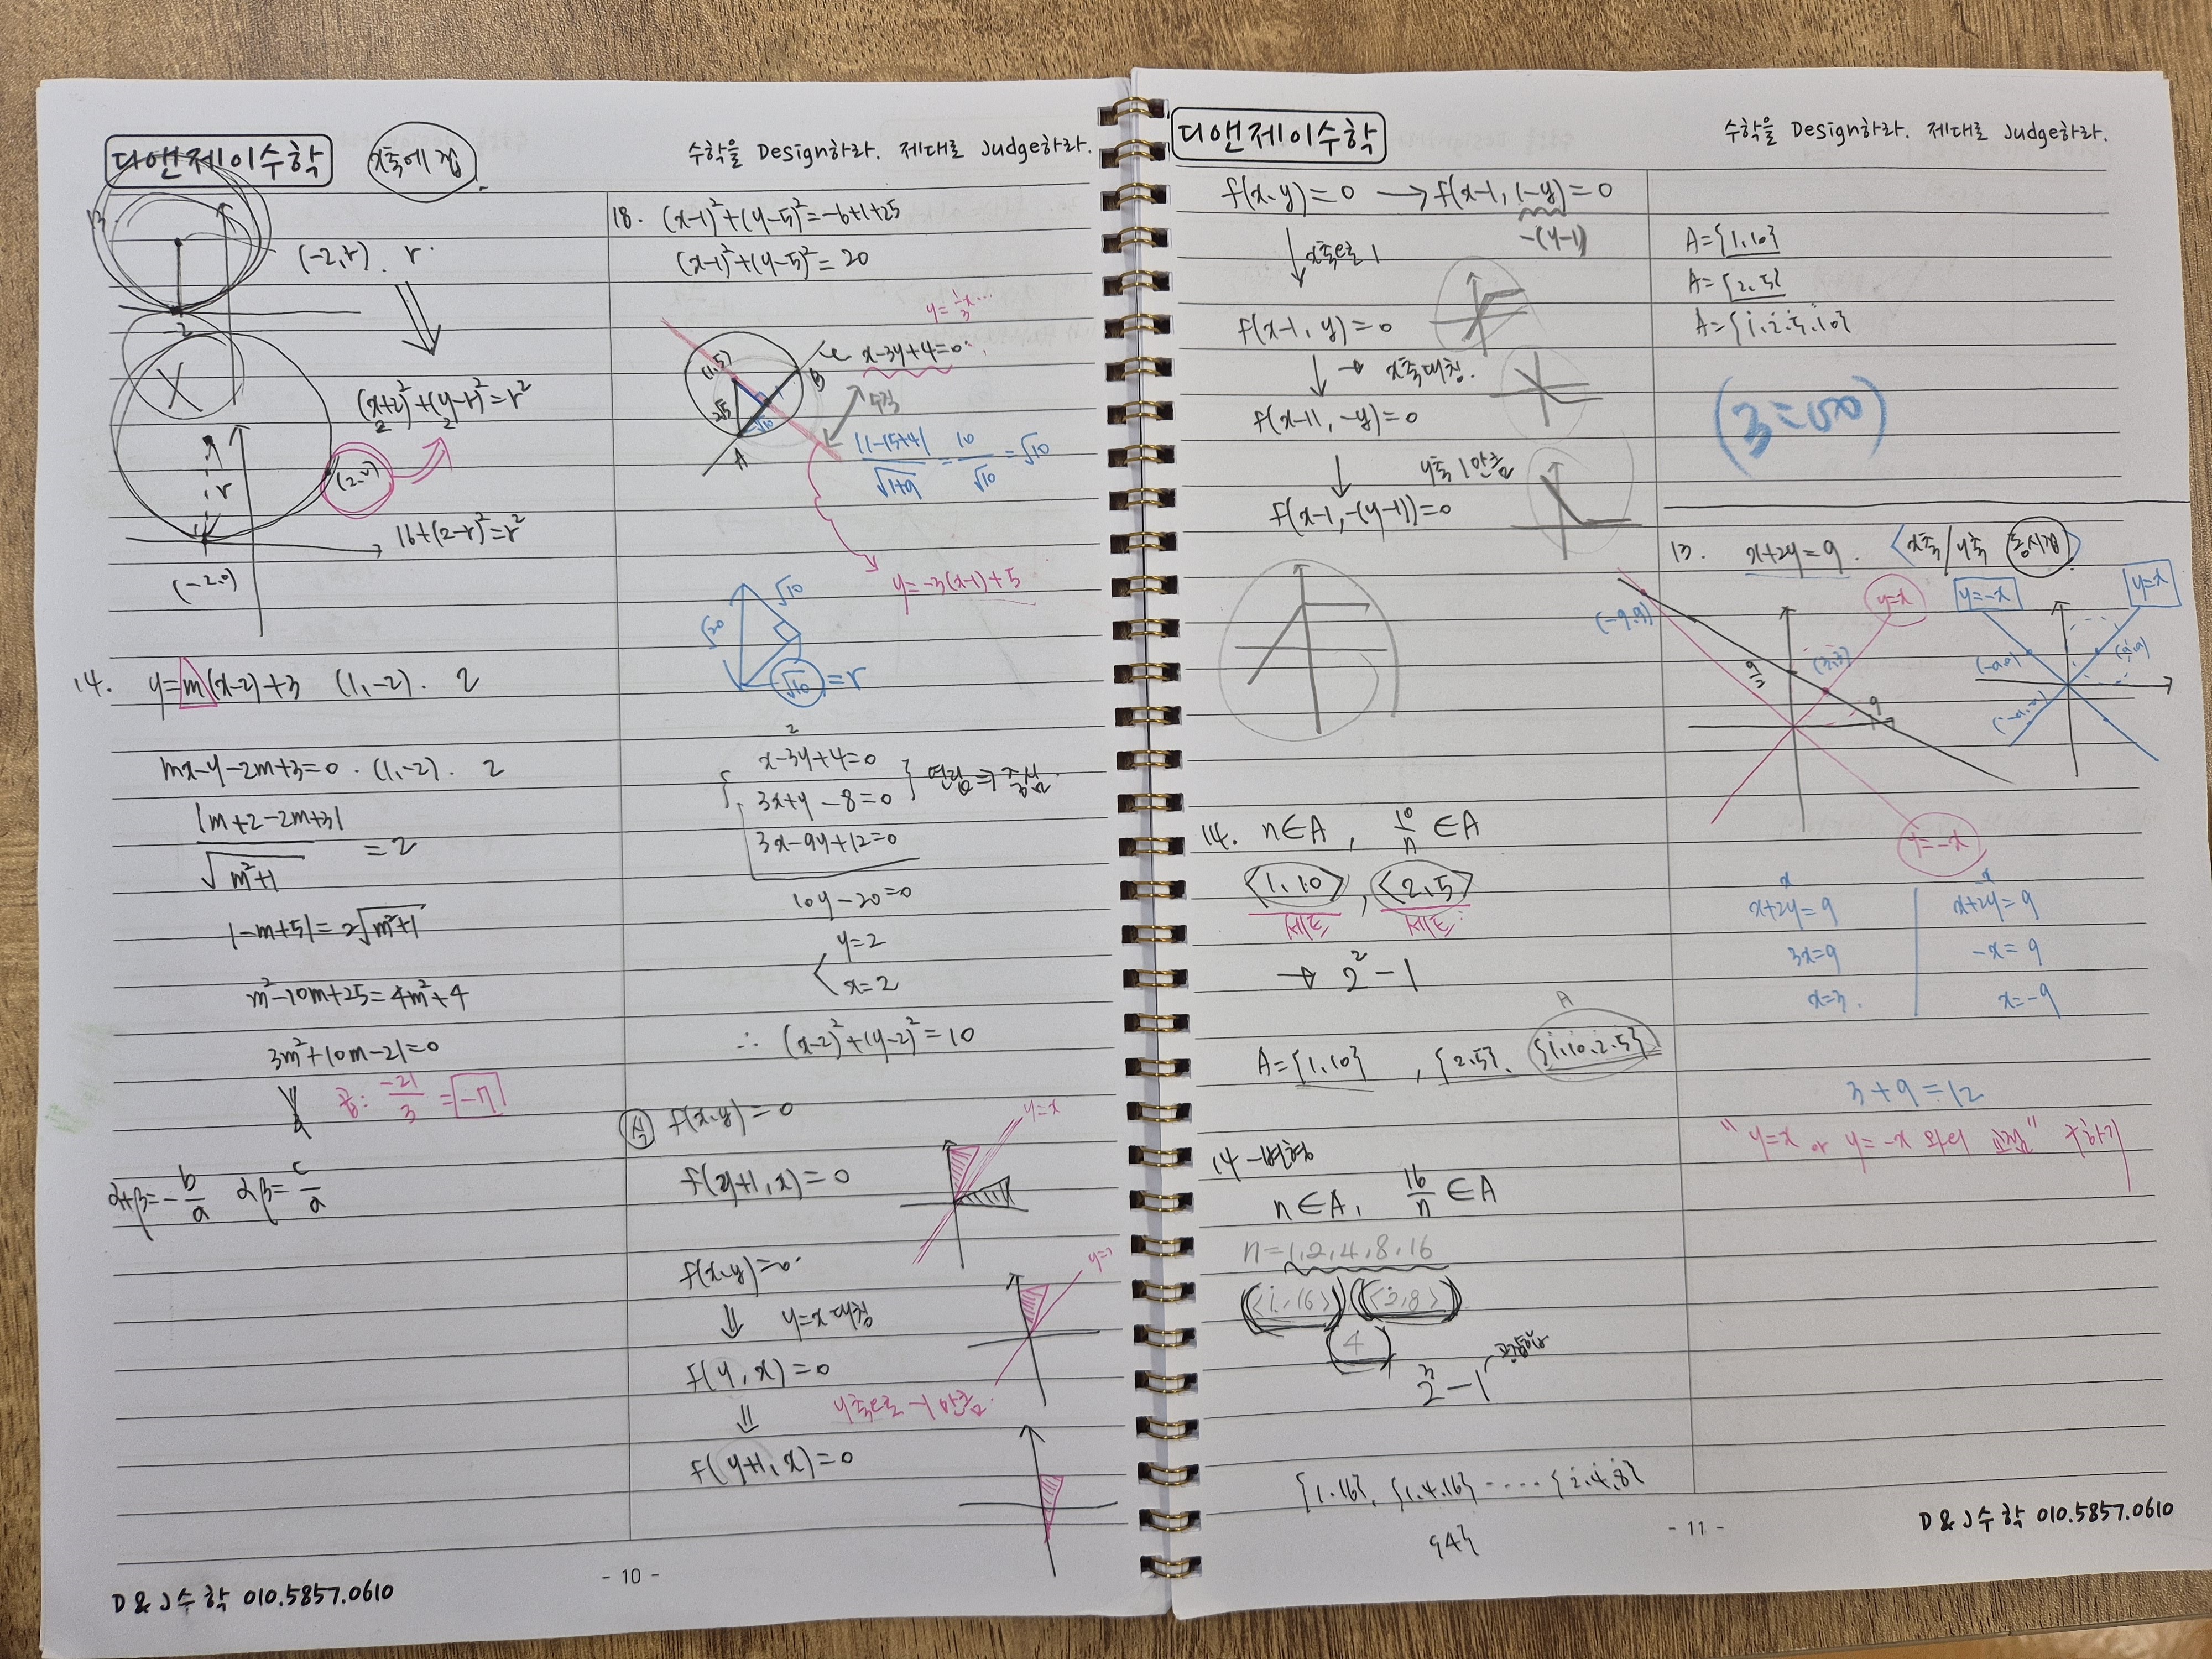 디앤제이수학
x축에 접.
수학을 Design하라. 제대로 Judge하라.
13.
(-2, r). r.
-2
(x+2)²+(y-r)²=r²
2 2
(2,2)
r
16+(2-r)²=r²
(-2,0)
14. y=m(x-2)+3 (1,-2). 2
mx-y-2m+3=0. (1,-2). 2
|m+2-2m+3| / √(m²+1) = 2
|-m+5|=2√(m²+1)
m²-10m+25=4m²+4
3m²+10m-21=0
곱: -21/3 = -7
α+β=-b/a αβ=c/a
18. (x-1)²+(y-5)²=-6+1+25
(x-1)²+(y-5)²=20
y=1/3 x...
x-3y+4=0
(1,5)
B
2√5
√10
수직
A
|1-15+4| / √(1+9) = 10/√10 = √10
y=-3(x-1)+5
√20
√10
√10 = r
2
x-3y+4=0
3x+y-8=0
연립⇒중심.
3x-9y+12=0
10y-20=0
y=2
x=2
∴ (x-2)²+(y-2)²=10
식 f(x,y)=0
y=x
f(y+1,x)=0
f(x,y)=0
y=
⇓ y=x 대칭
f(y,x)=0
⇓ y축으로 -1 만큼.
f(y+1,x)=0
- 10 -
D & J 수학 010.5857.0610
디앤제이수학
수학을 Design하라. 제대로 Judge하라.
f(x,y)=0 → f(x-1, 1-y)=0
-(y-1)
↓ x축으로 1
f(x-1, y)=0
↓ → x축대칭.
f(x-1, -y)=0
↓ y축 1만큼
f(x-1, -(y-1))=0
14. n∈A, 10/n ∈A
<1,10>, <2,5>
세트 세트
→ 2²-1
A
A={1,10}, {2,5}, {1,10,2,5}
14-변형
n∈A, 16/n ∈A
n=1,2,4,8,16
<1,16> <2,8>
4
2³-1
{1,16}, {1,4,16} ..... {2,4,8}
{4}
A={1,10}
A={2,5}
A={1,2,5,10}
13. x+2y=9. <x축/y축 동시접>
(-9,9)
y=x
y=-x
y=x
9/2
(3,3)
9
(-a,a)
(a,a)
(-a,-a)
y=-x
x
x+2y=9
3x=9
x=3.
-x
x+2y=9
-x=9
x=-9
3+9=12
"y=x or y=-x 와의 교점" 구하기
- 11 -
D & J 수학 010.5857.0610